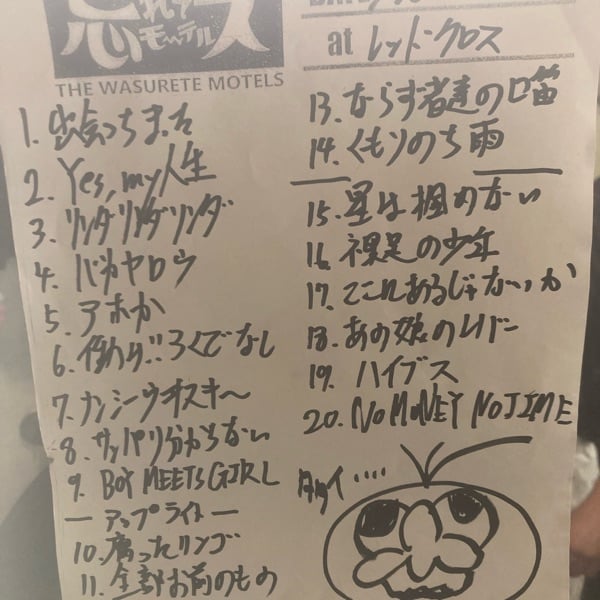 忘れてモーテルズ
THE WASURETE MOTELS
at レッドクロス
1. 出会っちまった
2. Yes, my 人生
3. リンダリンダリンダ
4. バカヤロウ
5. アホか
6. 働け!! ろくでなし
7. ナンシーウオスキ〜
8. サッパリ分からない
9. BOY MEETS GIRL
― アップライト ―
10. 腐ったリンゴ
11. 全部お前のもの
13. ならず者達の口笛
14. くもりのち雨
15. 星は掴めない
16. 裸足の少年
17. ここにあるじゃないか
18. あの娘のリバー
19. ハイブス
20. NO MONEY NO TIME